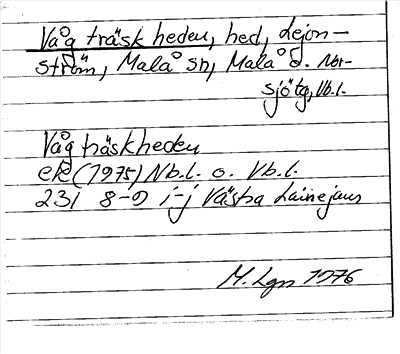 Vågträskheden, hed, Lejon-
ström, Malå sn, Malå o. Nor-
sjö tg, Vb.l.
Vågträskheden
ek (1975) Nb.l. o. Vb.l.
23I 8-9 i-j Västra Lainejaur
M. Lgn 1976